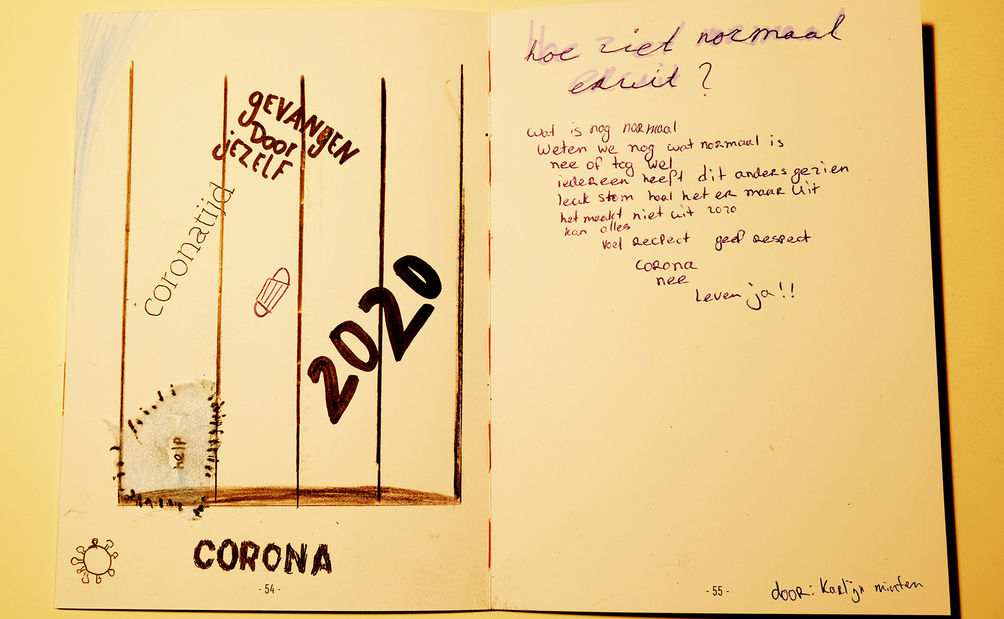 gEVANgEN
Door
jEZELF
coronatijd
2020
help
CORONA
- 54 -
hoe ziet normaal
eruit ?
wat is nog normaal
weten we nog wat normaal is
nee of tog wel
iedereen heeft dit anders gezien
leuk stom haal het er maar uit
het maakt niet uit 2020
kan alles
voel respect geef respect
corona
nee
Leven ja!!
- 55 -
door: Karlijn